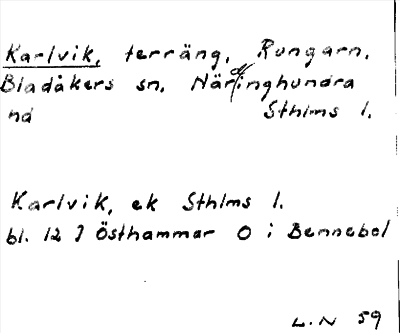 Karlvik, terräng, Rungarn,
Bladåkers sn, Närdinghundra
hd Sthlms l.
Karlvik, ek Sthlms l.
bl. 12 J Östhammar O i Bennebol
L.N 59